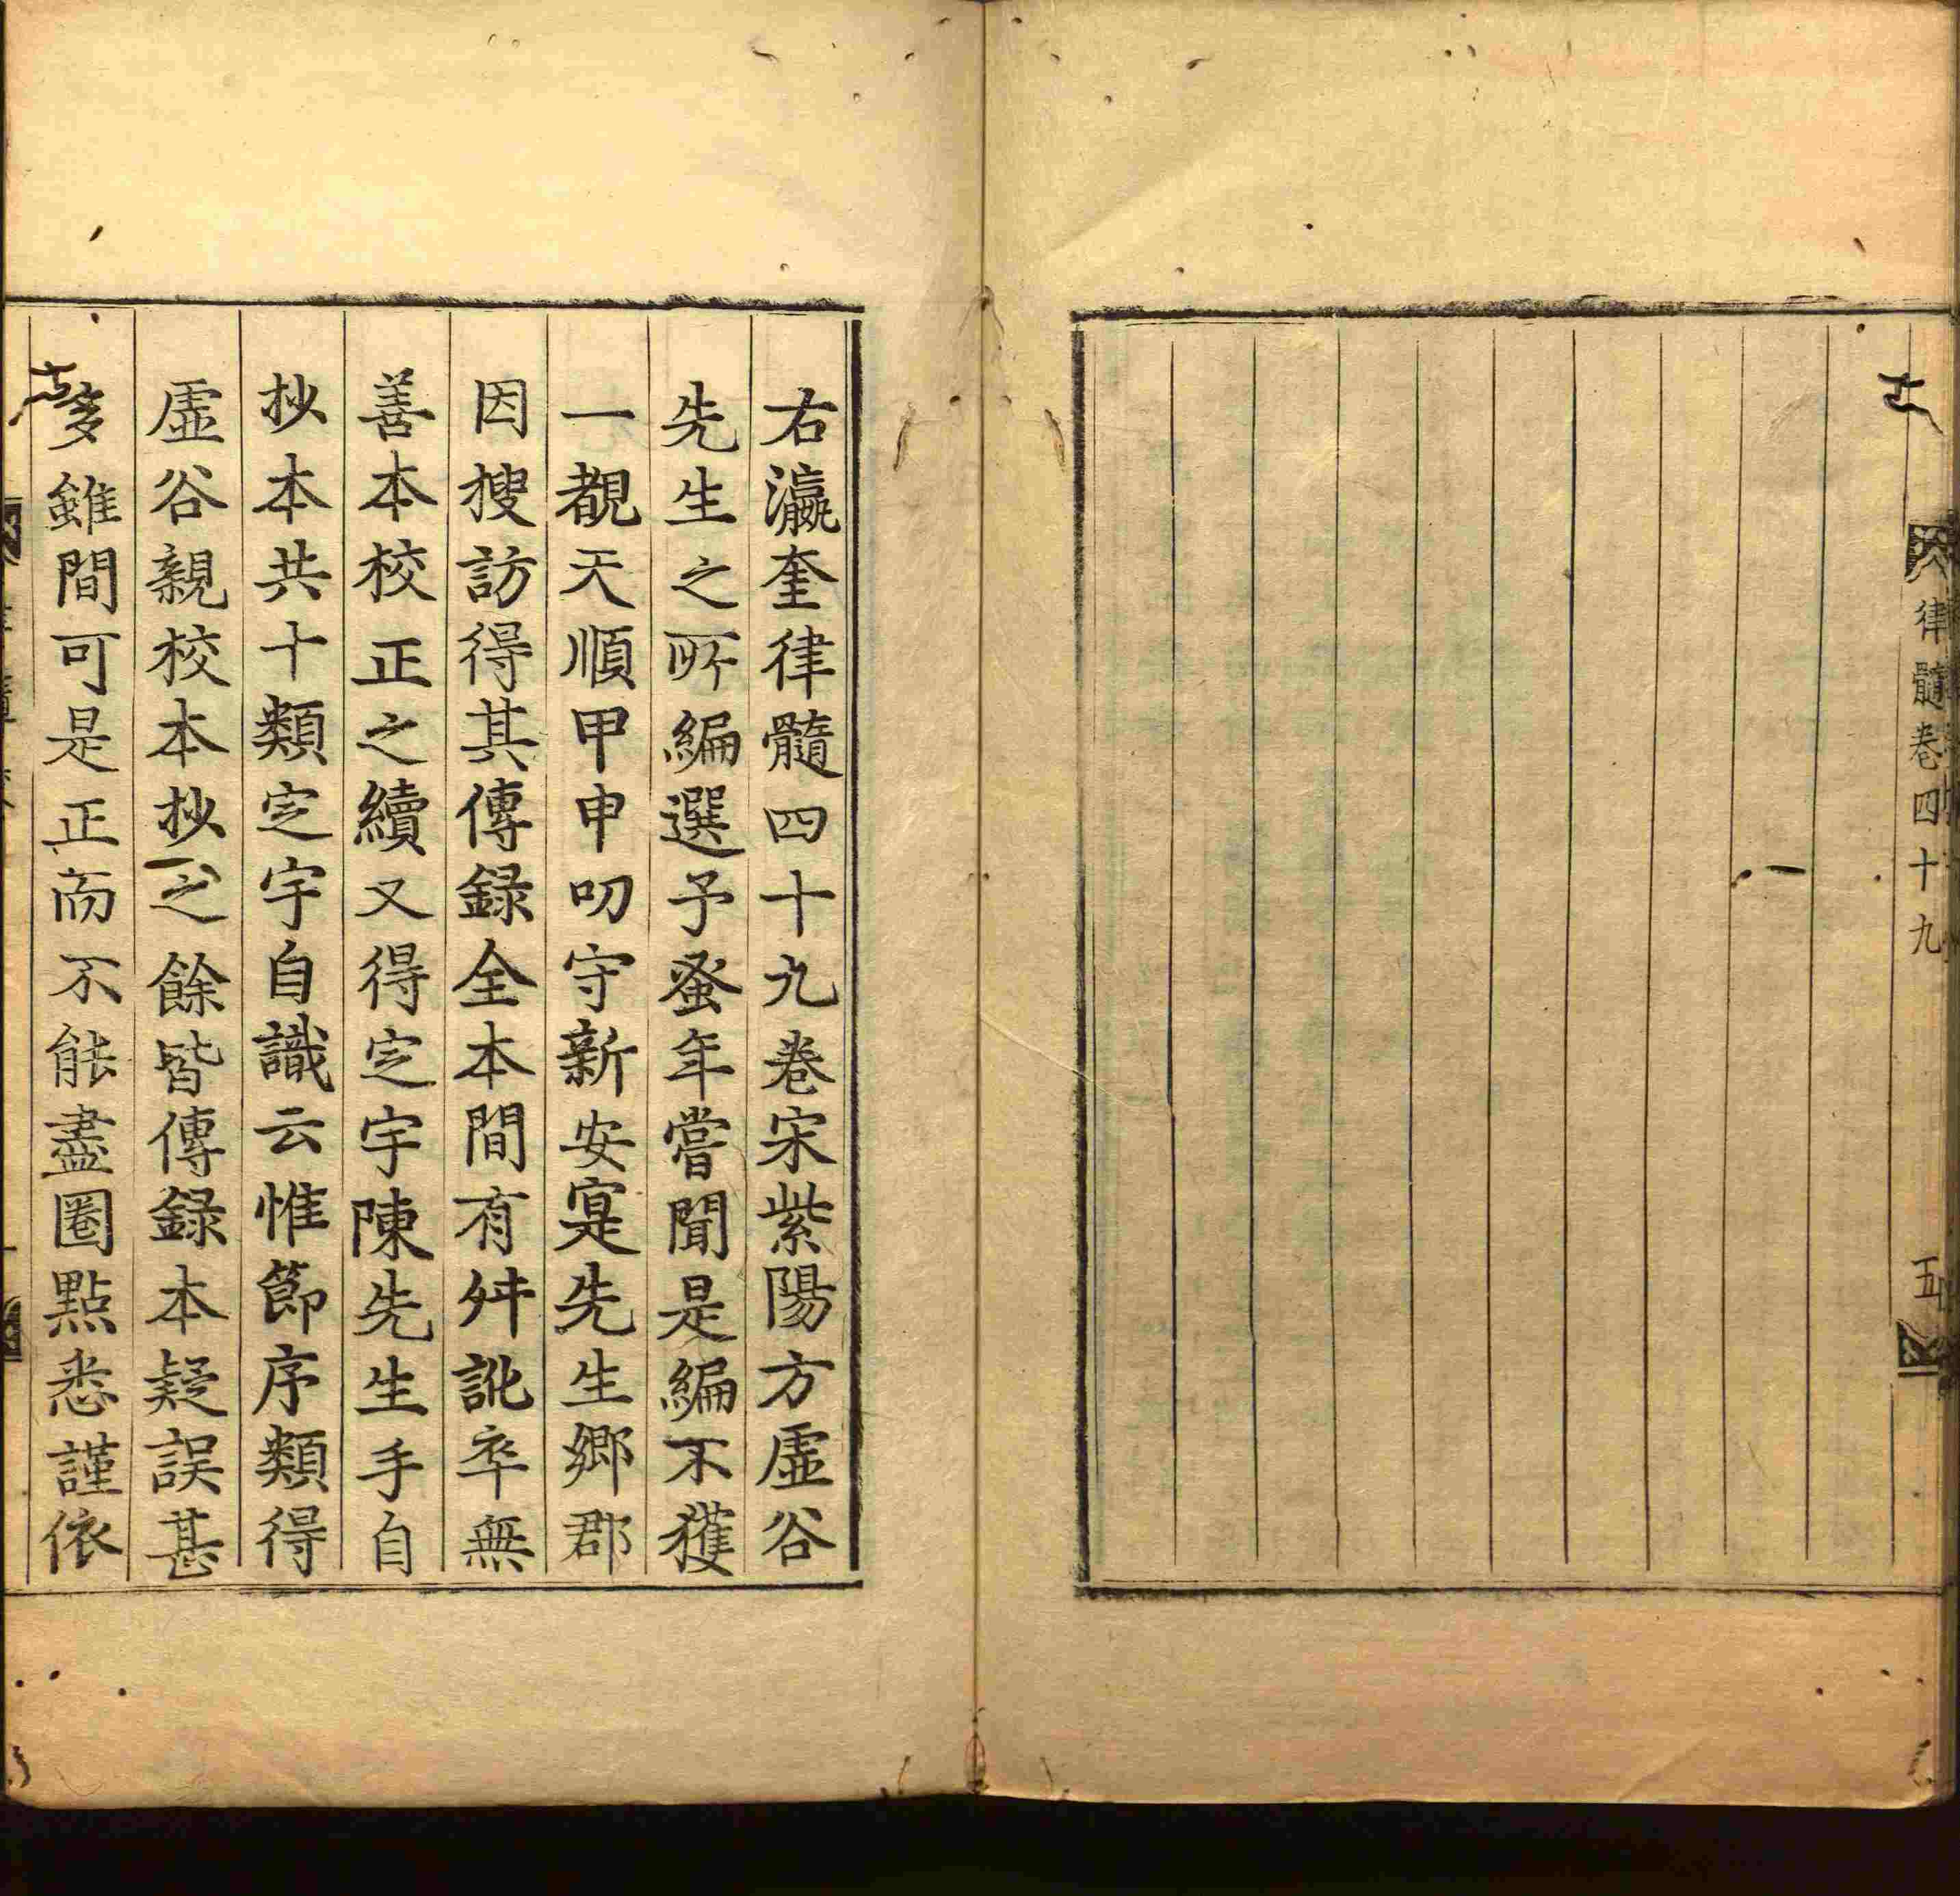 律髓卷四十九
五
右瀛奎律髓四十九卷宋紫陽方虛谷
先生之所編選予蚤年嘗聞是編不獲
一覩天順甲申叨守新安寔先生鄉郡
因搜訪得其傳録全本間有舛訛卒無
善本校正之續又得定宇陳先生手自
抄本共十類定宇自識云惟節序類得
虛谷親校本抄之餘皆傳録本疑誤甚
多雖間可是正而不能盡圈點悉謹依